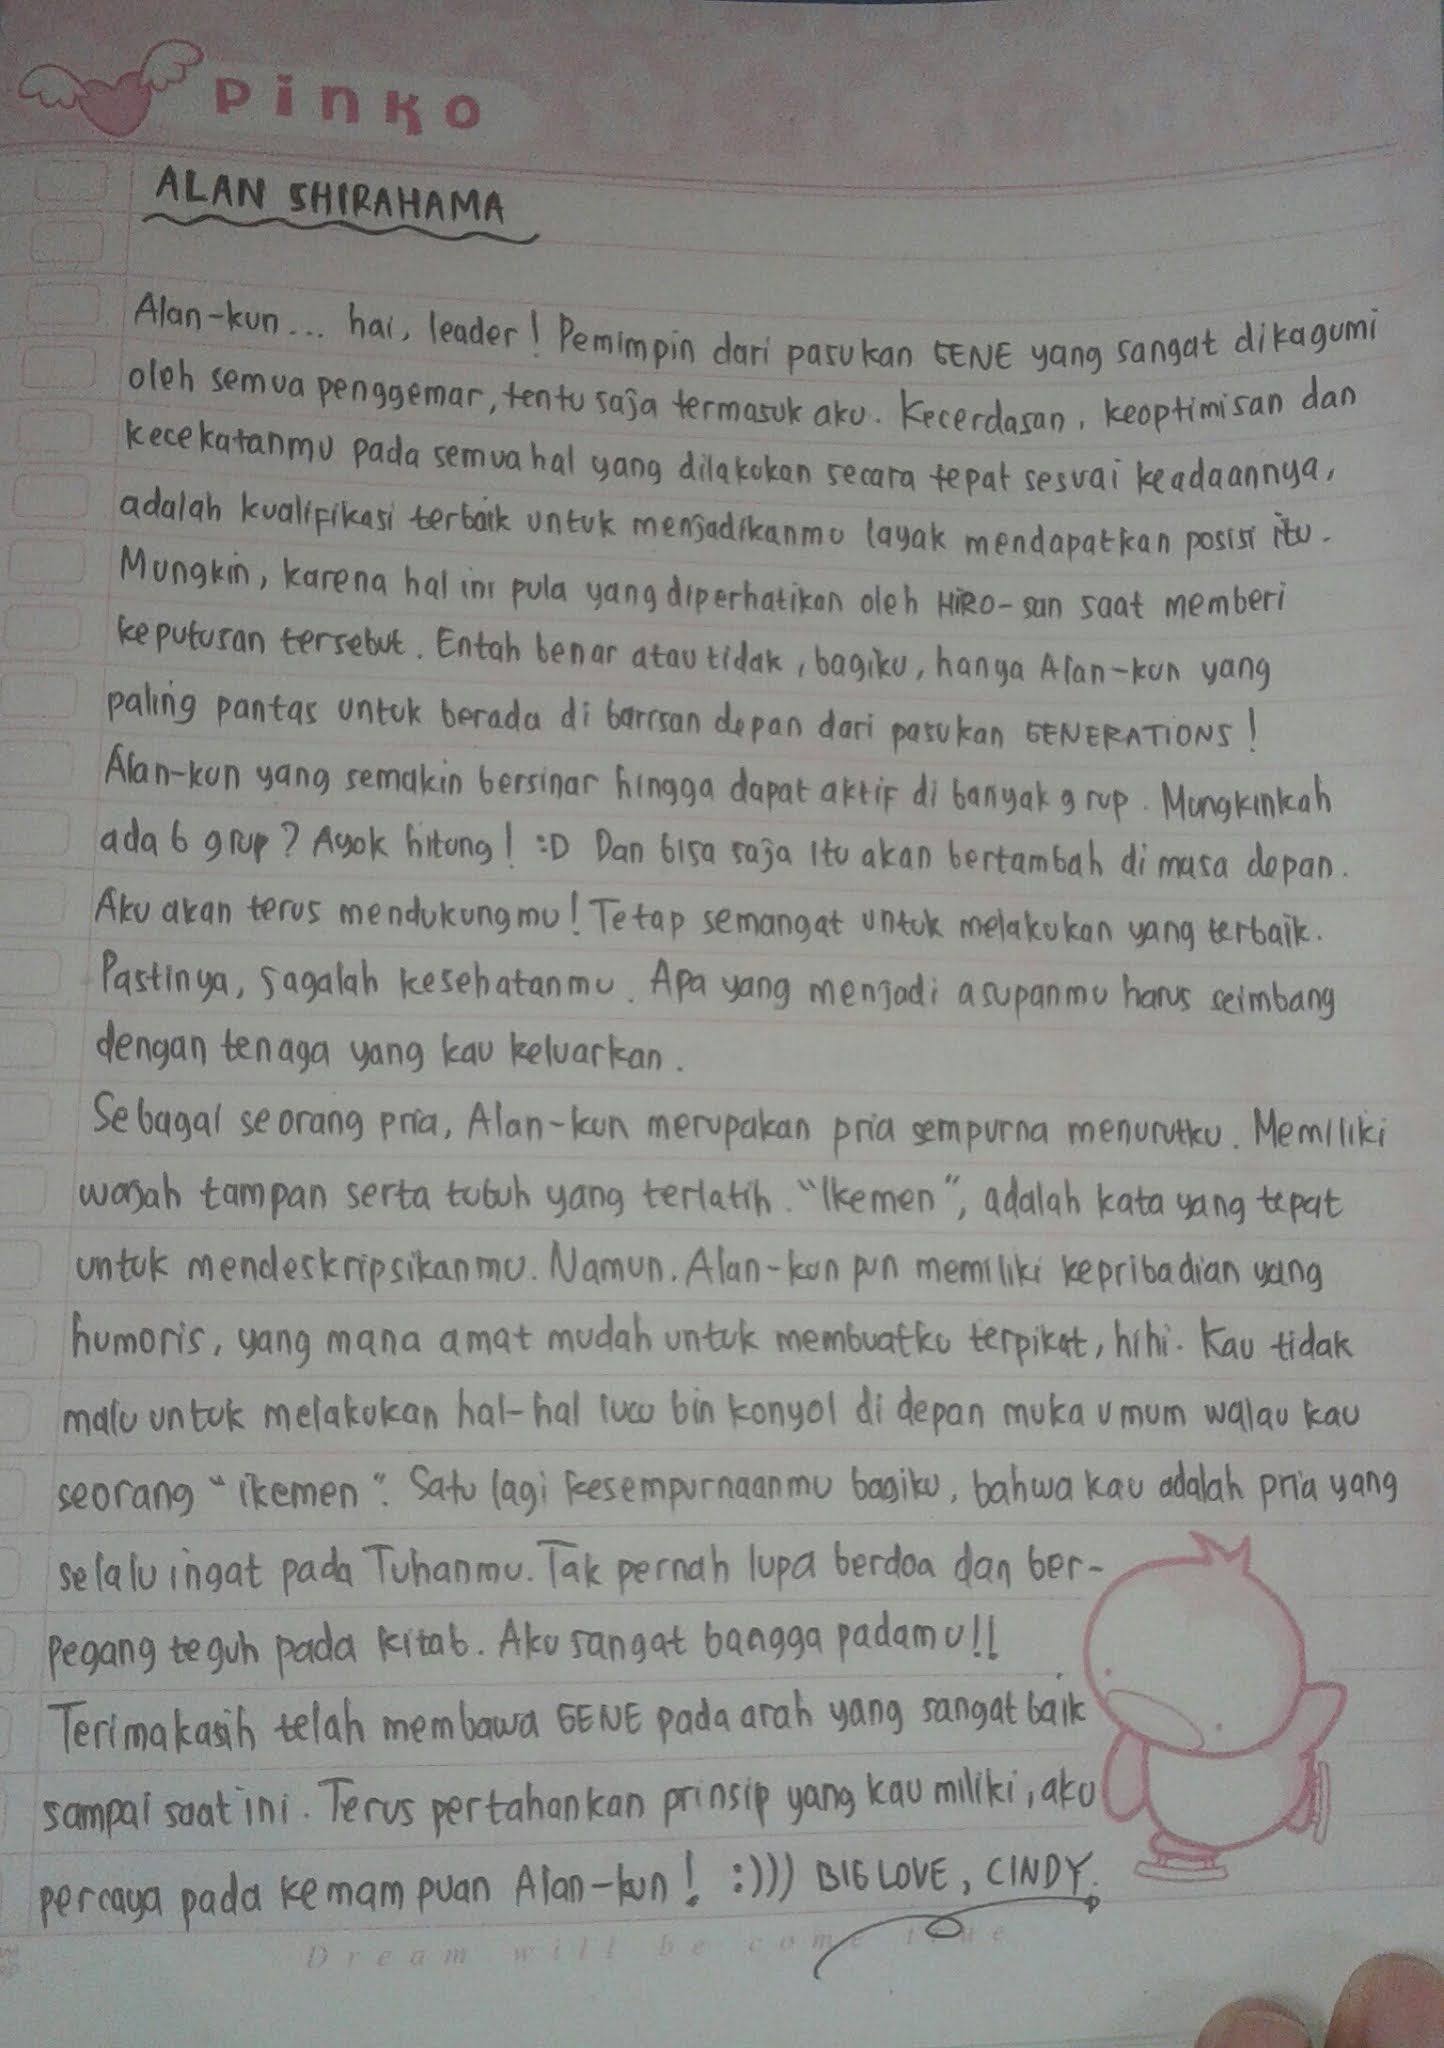 Pinko
ALAN SHIRAHAMA
Alan-kun... hai, leader! Pemimpin dari pasukan GENE yang sangat dikagumi
oleh semua penggemar, tentu saja termasuk aku. Kecerdasan, keoptimisan dan
kecekatanmu pada semua hal yang dilakukan secara tepat sesuai keadaannya,
adalah kualifikasi terbaik untuk menjadikanmu layak mendapatkan posisi itu.
Mungkin, karena hal ini pula yang diperhatikan oleh HIRO-san saat memberi
keputusan tersebut. Entah benar atau tidak, bagiku, hanya Alan-kun yang
paling pantas untuk berada di barisan depan dari pasukan GENERATIONS!
Alan-kun yang semakin bersinar hingga dapat aktif di banyak grup. Mungkinkah
ada 6 grup? Ayok hitung! :D Dan bisa saja itu akan bertambah di masa depan.
Aku akan terus mendukungmu! Tetap semangat untuk melakukan yang terbaik.
Pastinya, jagalah kesehatanmu. Apa yang menjadi asupanmu harus seimbang
dengan tenaga yang kau keluarkan.
Sebagai seorang pria, Alan-kun merupakan pria sempurna menurutku. Memiliki
wajah tampan serta tubuh yang terlatih. "Ikemen", adalah kata yang tepat
untuk mendeskripsikanmu. Namun, Alan-kun pun memiliki kepribadian yang
humoris, yang mana amat mudah untuk membuatku terpikat, hihi. Kau tidak
malu untuk melakukan hal-hal lucu bin konyol di depan muka umum walau kau
seorang "ikemen". Satu lagi kesempurnaanmu bagiku, bahwa kau adalah pria yang
selalu ingat pada Tuhanmu. Tak pernah lupa berdoa dan ber-
pegang teguh pada kitab. Aku sangat bangga padamu!!
Terimakasih telah membawa GENE pada arah yang sangat baik
sampai saat ini. Terus pertahankan prinsip yang kau miliki, aku
percaya pada kemampuan Alan-kun! :))) BIG LOVE, CINDY.
Dream will be come true